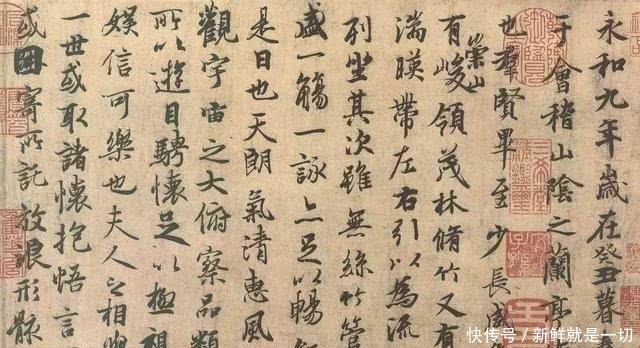 永和九年歲在癸丑暮
于會稽山陰之蘭亭
也羣賢畢至少長咸
有崇山峻領茂林脩竹又有
湍暎帶左右引以為流
列坐其次雖無絲竹管
盛一觴一詠亦足以暢
是日也天朗氣清惠風
觀宇宙之大俯察品類
所以遊目騁懷足以極視
娛信可樂也夫人之相與
一世或取諸懷抱悟言
或因寄所託放浪形骸
快传号/新鲜就是一切